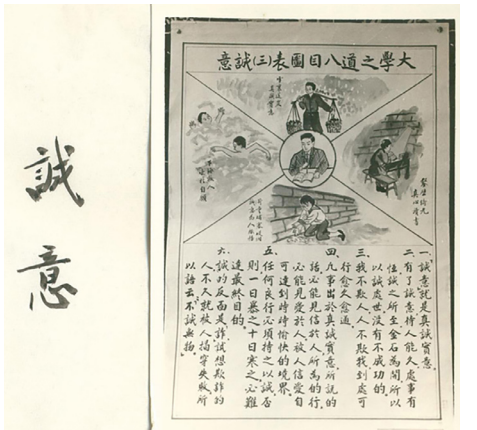 大學之道八目圖表(三)誠意
鑿壁偷光
真心讀書
一、誠意就是真誠實意。
二、有了誠意待人能久處事有
恆誠之所至金石為開所以
以誠處世沒有不成功的。
三、我不欺人人不欺我到處可
行愈久愈通。
四、凡事出於真誠實意所說的
話必能見信於人所為的行
必能見愛於人被人信愛自
可達到時時愉快的境界。
五、任何良行必須持之以誠否
則一日暴之十日寒之必難
達最終目的。
六、誠的反面是詐想欺詐的
人不久就被人揭穿失敗所
以語云不誠無物。
誠意